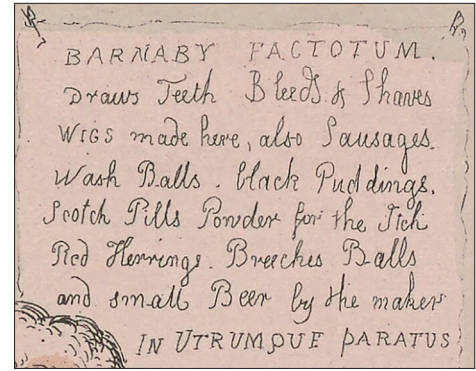 BARNABY FACTOTUM.
Draws Teeth Bleeds & Shaves
WIGS made here, also Sausages.
Wash Balls. black Puddings.
Scotch Pills Powder for the Itch
Red Herrings. Breeches Balls
and small Beer by the maker
IN UTRUMQUE PARATUS